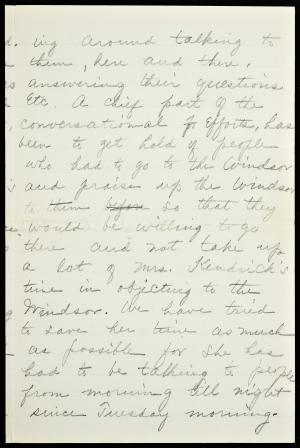 ing around talking to
them, here and there,
answering their questions
Etc. A chief part of the
conversational Efforts, has
been to get hold of people
who had to go to the Windsor
and praise up the Windsor
to them so that they
would be willing to go
there and not take up
a lot of Mrs. Kendrick's
time in objecting to the
Windsor. We have tried
to save her time as much
as possible for she has
had to be talking to people
from morning till night
since Tuesday morning.